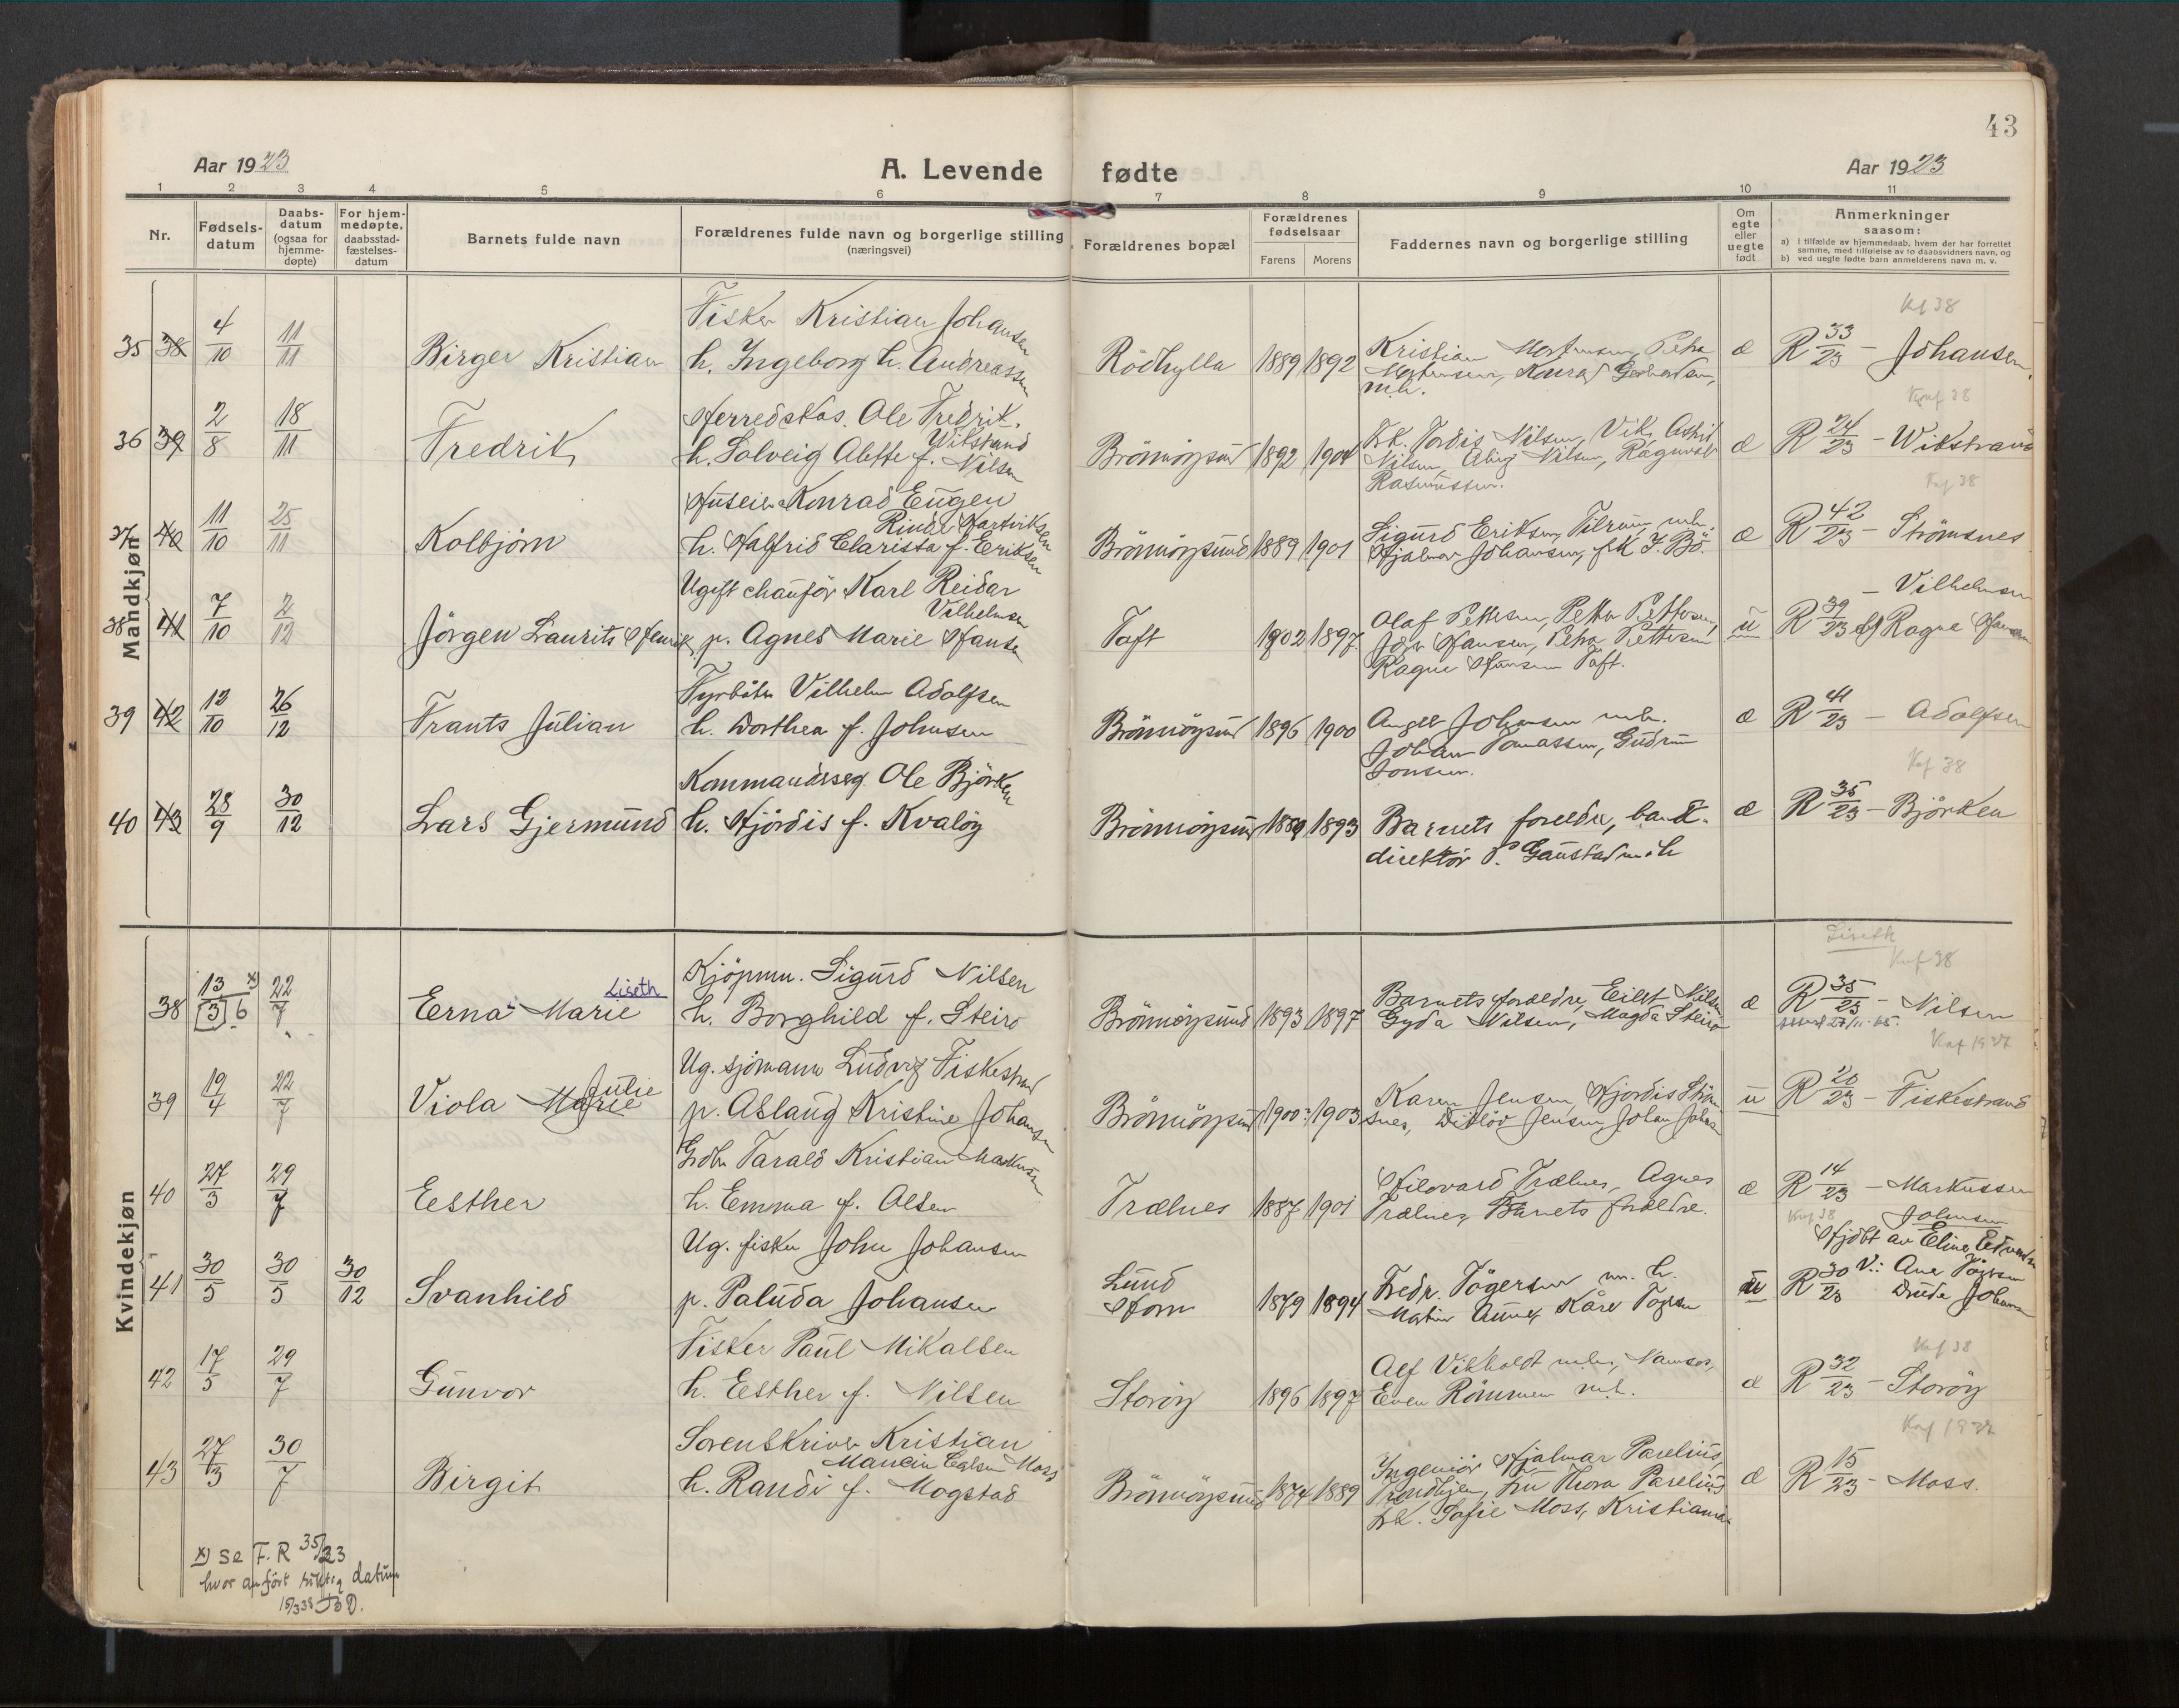 43
Aar 1923
A. Levende fødte
Aar 1923
1 2 3 4 5 6 7 8 9 10 11
Nr.
Fødsels-
datum
Daabs-
datum
(ogsaa for
hjemme-
døpte)
For hjem-
medøpte,
daabsstad-
fæstelses-
datum
Barnets fulde navn
Forældrenes fulde navn og borgerlige stilling
(næringsvei)
Forældrenes bopæl
Forældrenes
fødselsaar
Farens Morens
Faddernes navn og borgerlige stilling
Om
egte
eller
uegte
født
Anmerkninger
saasom:
a) i tilfælde av hjemmedaab, hvem der har forrettet
samme, med tilføielse av to daabsvidners navn, og
b) ved uegte fødte barn anmelderens navn m. v.
Mandkjøn
Fisker Kristian Johansen
35 38 4/10 11/11 Birger Kristian h. Ingeborg h. Andreassen Rödhylla 1889 1892 Kristian Mortensen, Petra
m.h.
æ R 33/23 - Johansen
Kf 38
Herredskas. Ole Fredrik
Wikstrand
36 39 2/8 18/11 Fredrik h. Solveig Alette f. Nilsen Brönnöysund 1892 1901 Frk. Tordis Nilsen, Vik, Astrid
Nilsen, Nilsen, Ragnvald
Rasmussen.
æ R 24/23 - Wikstrand
Knf 38
Huseier Konrad Eugen
Hartviksen
37 40 11/10 25/11 Kolbjörn h. Halfrid Clarissa f. Eriksen Brönnöysund 1889 1901 Sigurd Eriksen, Tilrum, m.h.
Hjalmar Johansen, frk J. Bö.
æ R 42/23 - Strömsnes
Knf 38
Ugift chauför Karl Reidar
Vilhelmsen
38 41 7/10 2/12 Jörgen Laurits Henrik p. Agnes Marie Hansen Toft 1902 1897 Olaf Pettersen, Petter Pettersen,
Hansen, Petra Pettersen
Ragna Hansen Toft.
u R 39/23 - Vilhelmsen
Ragna Hansen
Fyrböter Vilhelm Adolfsen
39 42 12/10 26/12 Frants Julian h. Dorthea f. Johnsen Brönnöysund 1896 1900 Angell Johnsen m.h.
Johan Tomassen, Gudrun
Jonsen.
æ R 41/23 - Adolfsen
Kommandersg. Ole Björken
40 43 28/9 30/12 Lars Gjermund h. Hjördis f. Kvalöy Brönnöysund 1889 1893 Barnets foreldre, bank-
direktör P. Gaustad m.h
æ R 35/23 - Björken
Knf 38
Kvindekjøn
Kjöpmn. Sigurd Nilsen
38 13/[3] 6 x) 22/7 Erna Marie Liseth h. Borghild f. Steiro Brönnöysund 1893 1897 Barnets foreldre, Eilert Nilsen
Gyda Nilsen, Magda Steiro
æ R 35/23 - Nilsen
Liseth
Knf 38
Ug. sjömann Ludvig Fiskestrand
39 19/4 22/7 Viola Marie Julie p. Aslaug Kristine Johansen Brönnöysund 1900 1903 Karen Jensen, Hjördis Ström-
snes, Ditlöv Jensen, Johan Johan
u R 20/23 - Fiskestrand
Knf 1937
Grdbr. Tarald Kristian Markussen
40 27/3 29/7 Esther h. Emma f. Olsen Trælnes 1887 1901 Trælnes, Agnes
Trælnes, Barnets foreldre.
æ R 14/23 - Markussen
Knf 38
Ug. fisker John Johansen
41 30/5 30/5 30/12 Svanhild p. Paluda Johansen Lund
Horn
1879 1894 Fredr. Tögersen m. h.
Martin Kåre Togersen
u R 30/23 Johansen
Hjdbt av Eline Edvards
V.: Ane Tögersen
Drude Johans
Fisker Paul Mikalsen
42 17/5 29/7 Gunvor h. Esther f. Nilsen Storöy 1896 1897 Alf Vikholdt m.h., Namsos,
Even Römmen m.h.
æ R 32/23 - Storöy
Knf 38
Sorenskriver Kristian
Moss
43 27/3 30/7 Birgit h. Randi f. Mogstad Brönnöysund 1874 1889 Ingeniör Hjalmar Parelius,
Trondhjem, fru Thora Parelius
frk. Sofie Moss, Kristiania
æ R 15/23 - Moss.
Knf 1937
x) se F.R 35/23
hvor anfört riktig datum
15/3 38